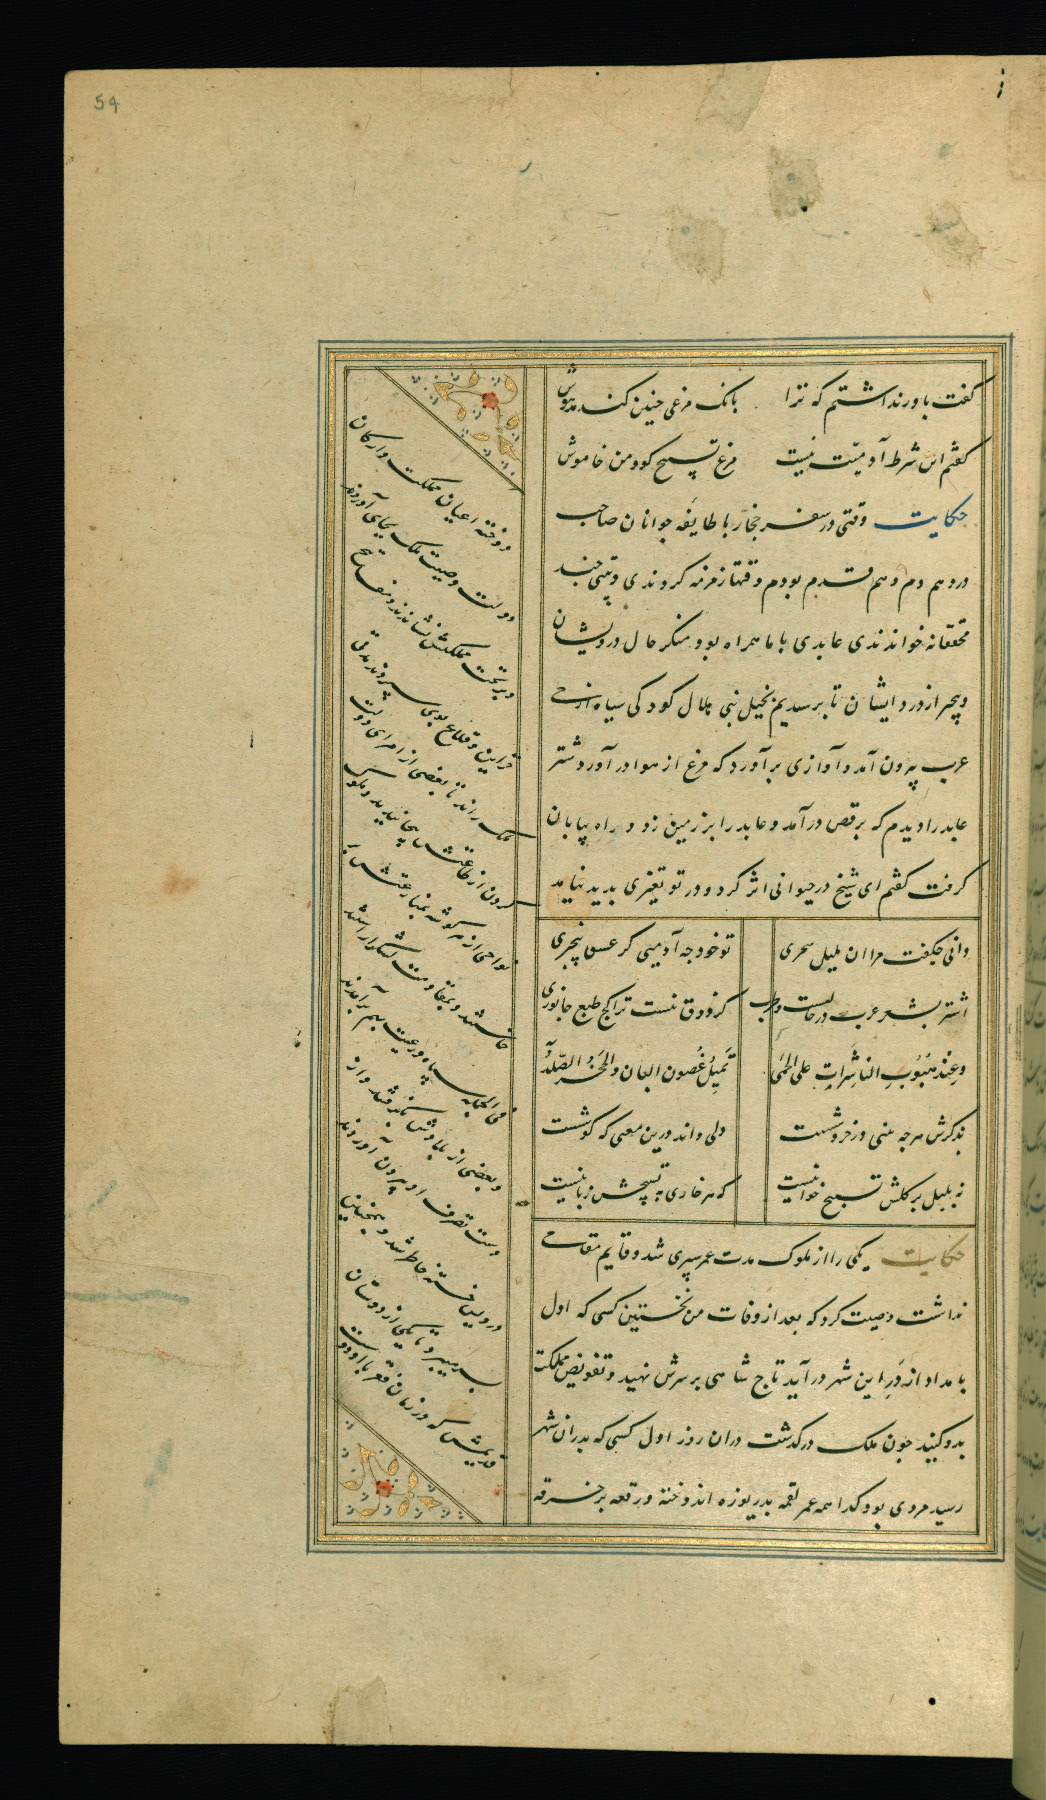 54
گفت باور نداشتم که ترا بانک مرغی چنین کند مدهوش
گفتم این شرط آدمیّت نیست مرغ تسبیح کو و من خاموش
حکایت وقتی در سفر حجاز با طایفه جوانان صاحب
درد هم دم و هم قدم بودم وقتها زمزمه کردندی و بیتی چند
محققانه خواندندی عابدی با ما همراه بود منکر حال درویشان
و بیخبر از درد ایشان تا برسیدیم بنخیل بنی هلال کودکی سیاه از حی
عرب بیرون آمد و آوازی برآورد که مرغ از هوا درآورد شتر
عابد را دیدم که برقص درآمد و عابد را بر زمین زد و راه بیابان
گرفت گفتم ای شیخ در حیوانی اثر کرد و در تو تغیری بدید نیامد
دانی چکفت مرا ان بلبل سحری تو خود چه آدمیی کز عشق بیخبری
اشتر بشعر عرب در حالتست و طرب کر ذوق نیست ترا کج طبع جانوری
وعِند هُبُوبِ الناشَراتِ علی الحِمَی تَمِیلُ غُصون البان والحَجَرُ الصّلدُ
بذکرش هرچه بینی در خروشست دلی داند درین معنی که کوشست
نه بلبل بر کلش تسبیح خوانیست که هر خاری به تسبیحش زبانیست
حکایت یکی را از ملوک مدت عمر سپری شد و قایم مقامی
نداشت وصیت کرد که بعد از وفات من نخستین کسی که اول
بامداد از دَرِ این شهر درآید تاج شاهی بر سرش نهید و تفویض مملکت
بدو کنید چون ملک درگذشت دران روز اول کسی که بدران شهر
رسید مردی بود کدا همه عمر لقمه بدریوزه اندوخته و رقعه بر خرقه
دوخته اعیان مملکت و ارکان
دولت وصیت ملک بجای آوردند
و بر تخت مملکتش نشاندند و مفاتیح
خزاین و قلاع بوی سپردند مدتی
ملک راند تا بعضی از امرای دولت
گردن از طاعتش بپیچانیدند و ملوک
نواحی از هر گوشه بمنازعتش بر
خاستند و بمقاومت لشکر آراستند
فی الجمله سپاه و رعیت بهم برآمدند
و بعضی از بلادش بگرفتند و از
دست تصرف او بیرون آوردند
درویش خسته خاطر شد و همچنین
بسر میبرد تا یکی از دوستان
قدیمش که در زمان فقر با او بود